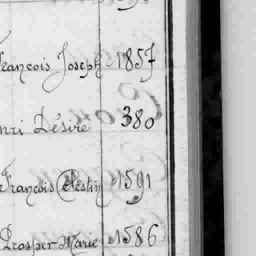 François Joseph 1857
Henri Désiré 380
François Célestin 1591
Prosper Marie 1586